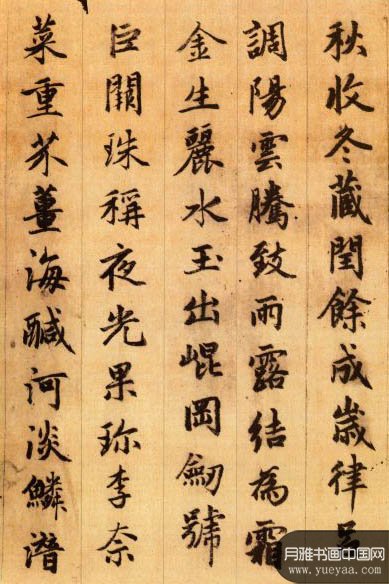 秋收冬藏閏餘成歲律呂
調陽雲騰致雨露結為霜
金生麗水玉出崐岡劒號
巨闕珠稱夜光果珎李奈
菜重芥薑海醎河淡鱗潛
月雅书画中国网
www.yueyaa.com